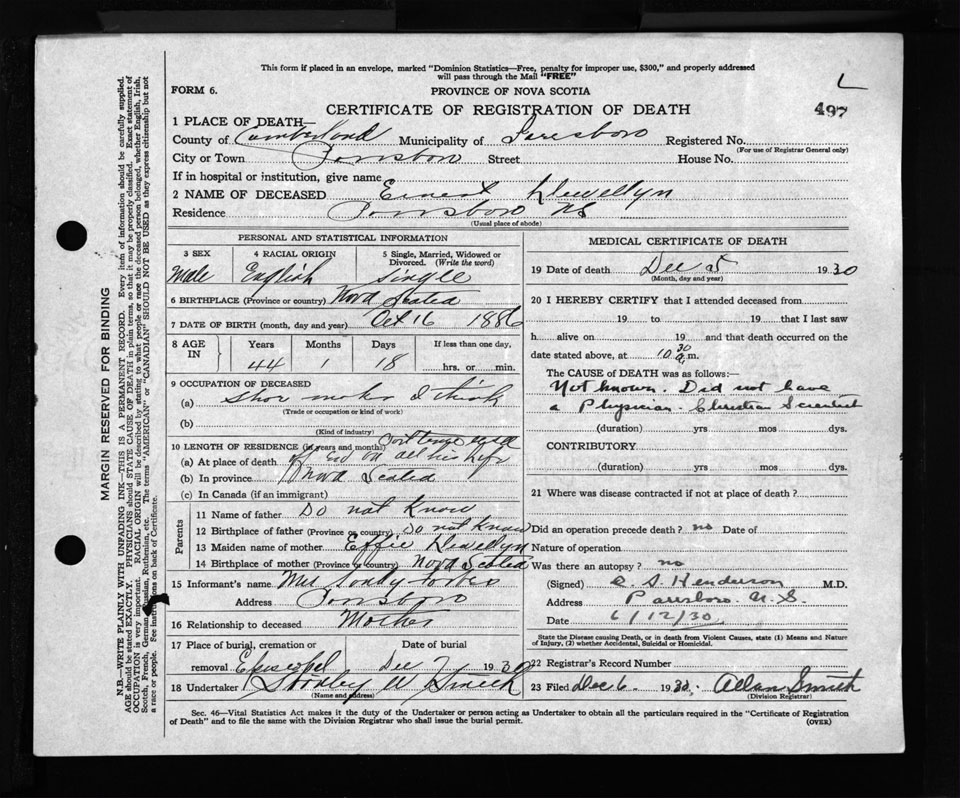 This form if placed in an envelope, marked "Dominion Statistics—Free, penalty for improper use, $300," and properly addressed
will pass through the Mail "FREE"
L
FORM 6.
PROVINCE OF NOVA SCOTIA
497
CERTIFICATE OF REGISTRATION OF DEATH
1 PLACE OF DEATH—
County of Cumberland Municipality of Parrsboro Registered No.
(For use of Registrar General only)
City or Town Parrsboro Street House No.
If in hospital or institution, give name
2 NAME OF DECEASED Ernest Llewellyn
Residence Parrsboro NS
(Usual place of abode)
PERSONAL AND STATISTICAL INFORMATION
3 SEX 4 RACIAL ORIGIN 5 Single, Married, Widowed or
Divorced. (Write the word)
Male English Single
6 BIRTHPLACE (Province or country) Nova Scotia
7 DATE OF BIRTH (month, day and year) Oct 16 1886
8 AGE IN Years Months Days If less than one day,
44 1 18 hrs. or min.
9 OCCUPATION OF DECEASED
(a) Shoe maker I think
(Trade or occupation or kind of work)
(b)
(Kind of industry)
10 LENGTH OF RESIDENCE (in years and months)
(a) At place of death off and on all his life
(b) In province Nova Scotia
(c) In Canada (if an immigrant)
Parents
11 Name of father Do not Know
12 Birthplace of father (Province or country) Do not Know
13 Maiden name of mother Effie Llewellyn
14 Birthplace of mother (Province or country) Nova Scotia
15 Informant's name Mrs
Address Parrsboro
16 Relationship to deceased Mother
17 Place of burial, cremation or Date of burial
removal Episcopal Dec 7 1930
18 Undertaker W. Smith
(Name and address)
MEDICAL CERTIFICATE OF DEATH
19 Date of death Dec 5 1930
(Month, day and year)
20 I HEREBY CERTIFY that I attended deceased from
19 to 19 that I last saw
h alive on 19 and that death occurred on the
date stated above, at 10 30 a.m.
The CAUSE OF DEATH was as follows:—
Not known. Did not have
a Physician. Christian Scientist
(duration) yrs mos dys.
CONTRIBUTORY
(duration) yrs mos dys.
21 Where was disease contracted if not at place of death?
Did an operation precede death? no Date of
Nature of operation
Was there an autopsy? no
(Signed) C. S. Henderson M.D.
Address Parrsboro. N.S.
Date 6/12/30
State the Disease causing Death, or in death from Violent Causes, state (1) Means and Nature
of Injury, (2) whether Accidental, Suicidal or Homicidal.
22 Registrar's Record Number
23 Filed Dec 6 1930. Allan Smith
(Division Registrar)
Sec. 46—Vital Statistics Act makes it the duty of the Undertaker or person acting as Undertaker to obtain all the particulars required in the "Certificate of Registration
of Death" and to file the same with the Division Registrar who shall issue the burial permit.
(OVER)
MARGIN RESERVED FOR BINDING
N.B.—WRITE PLAINLY WITH UNFADING INK—THIS IS A PERMANENT RECORD. Every item of information should be carefully supplied.
AGE should be stated EXACTLY. PHYSICIANS should STATE CAUSE OF DEATH in plain terms, so that it may be properly classified. Exact statement of
OCCUPATION is very important. RACIAL ORIGIN will be described by stating to what people or race the deceased person belonged, whether English, Irish,
Scotch, French, German, Russian, Ruthenian, etc. The terms "AMERICAN" or "CANADIAN" SHOULD NOT BE USED as they express citizenship but not
a race or people. See instructions on back of Certificate.